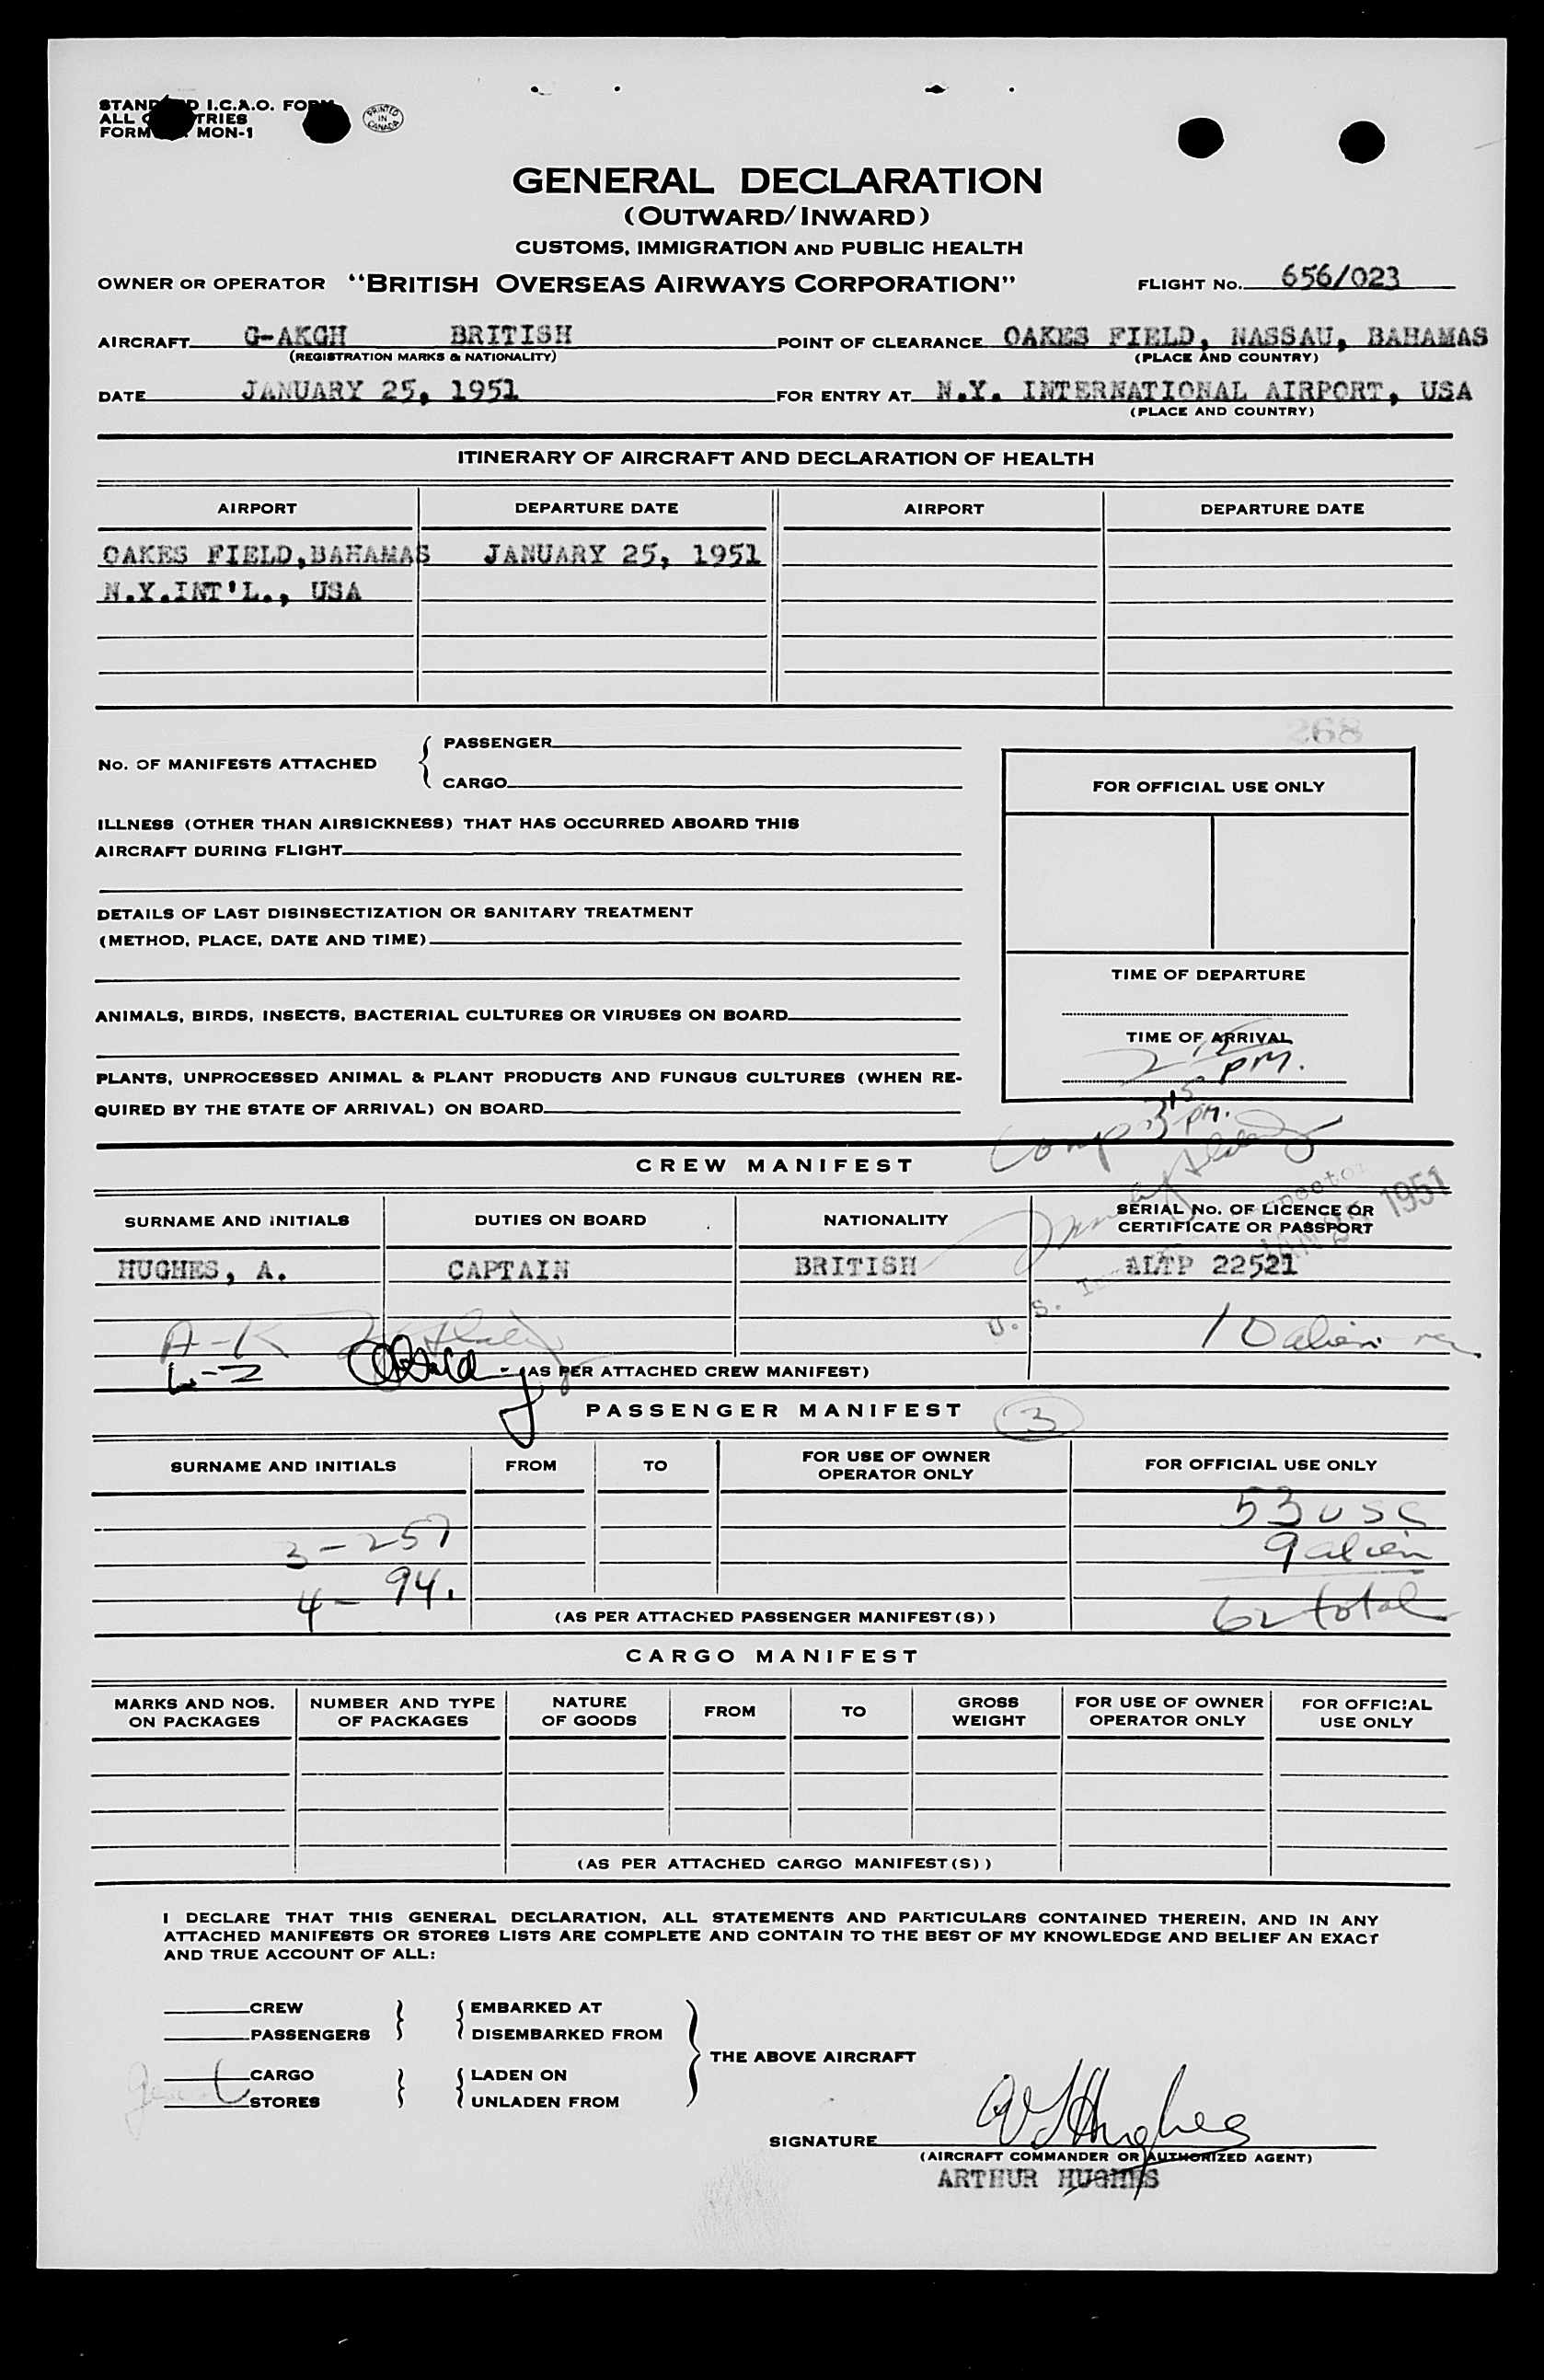 STANDARD I.C.A.O. FORM
ALL COUNTRIES
FORM MON-1
PRINTED IN CANADA
GENERAL DECLARATION
(OUTWARD/INWARD)
CUSTOMS, IMMIGRATION AND PUBLIC HEALTH
OWNER OR OPERATOR "BRITISH OVERSEAS AIRWAYS CORPORATION" FLIGHT No. 656/023
AIRCRAFT G-AKGH BRITISH POINT OF CLEARANCE OAKES FIELD, NASSAU, BAHAMAS
(REGISTRATION MARKS & NATIONALITY) (PLACE AND COUNTRY)
DATE JANUARY 25, 1951 FOR ENTRY AT N.Y. INTERNATIONAL AIRPORT, USA
(PLACE AND COUNTRY)
ITINERARY OF AIRCRAFT AND DECLARATION OF HEALTH
AIRPORT DEPARTURE DATE AIRPORT DEPARTURE DATE
OAKES FIELD,BAHAMAS JANUARY 25, 1951
N.Y.INT'L., USA
268
No. OF MANIFESTS ATTACHED { PASSENGER
CARGO
FOR OFFICIAL USE ONLY
ILLNESS (OTHER THAN AIRSICKNESS) THAT HAS OCCURRED ABOARD THIS
AIRCRAFT DURING FLIGHT
DETAILS OF LAST DISINSECTIZATION OR SANITARY TREATMENT
(METHOD, PLACE, DATE AND TIME)
TIME OF DEPARTURE
ANIMALS, BIRDS, INSECTS, BACTERIAL CULTURES OR VIRUSES ON BOARD
TIME OF ARRIVAL
2 15 PM.
PLANTS, UNPROCESSED ANIMAL & PLANT PRODUCTS AND FUNGUS CULTURES (WHEN RE-
QUIRED BY THE STATE OF ARRIVAL) ON BOARD
Comp 3 15 PM.
CREW MANIFEST
SURNAME AND INITIALS DUTIES ON BOARD NATIONALITY SERIAL No. OF LICENCE OR
CERTIFICATE OR PASSPORT
U. S. 1951
HUGHES, A. CAPTAIN BRITISH ALTP 22521
A-K 10 alien
L-Z (AS PER ATTACHED CREW MANIFEST)
PASSENGER MANIFEST 3
SURNAME AND INITIALS FROM TO FOR USE OF OWNER
OPERATOR ONLY FOR OFFICIAL USE ONLY
53 USC
3-257 9 alien
4-94. 62 total
(AS PER ATTACHED PASSENGER MANIFEST(S))
CARGO MANIFEST
MARKS AND NOS.
ON PACKAGES NUMBER AND TYPE
OF PACKAGES NATURE
OF GOODS FROM TO GROSS
WEIGHT FOR USE OF OWNER
OPERATOR ONLY FOR OFFICIAL
USE ONLY
(AS PER ATTACHED CARGO MANIFEST(S))
I DECLARE THAT THIS GENERAL DECLARATION, ALL STATEMENTS AND PARTICULARS CONTAINED THEREIN, AND IN ANY
ATTACHED MANIFESTS OR STORES LISTS ARE COMPLETE AND CONTAIN TO THE BEST OF MY KNOWLEDGE AND BELIEF AN EXACT
AND TRUE ACCOUNT OF ALL:
CREW } { EMBARKED AT
PASSENGERS } { DISEMBARKED FROM
THE ABOVE AIRCRAFT
CARGO } { LADEN ON
STORES } { UNLADEN FROM
SIGNATURE A Hughes
(AIRCRAFT COMMANDER OR AUTHORIZED AGENT)
ARTHUR HUGHES